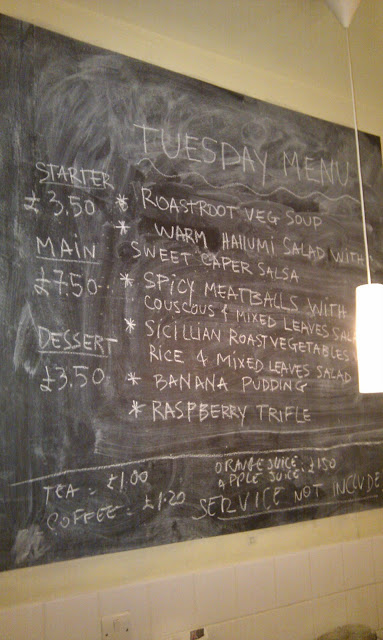 TUESDAY MENU
STARTER
£3.50
MAIN
£7.50
DESSERT
£3.50
* ROASTROOT VEG SOUP
* WARM HALLUMI SALAD WITH
SWEET CAPER SALSA
* SPICY MEATBALLS WITH
COUSCOUS & MIXED LEAVES SAL
* SICILLIAN ROAST VEGETABLES
RICE & MIXED LEAVES SALAD
* BANANA PUDDING
* RASPBERRY TRIFLE
TEA = £1.00
COFFEE = £1.20
ORANGE JUICE = £1.50
APPLE JUICE =
SERVICE NOT INCLUDE